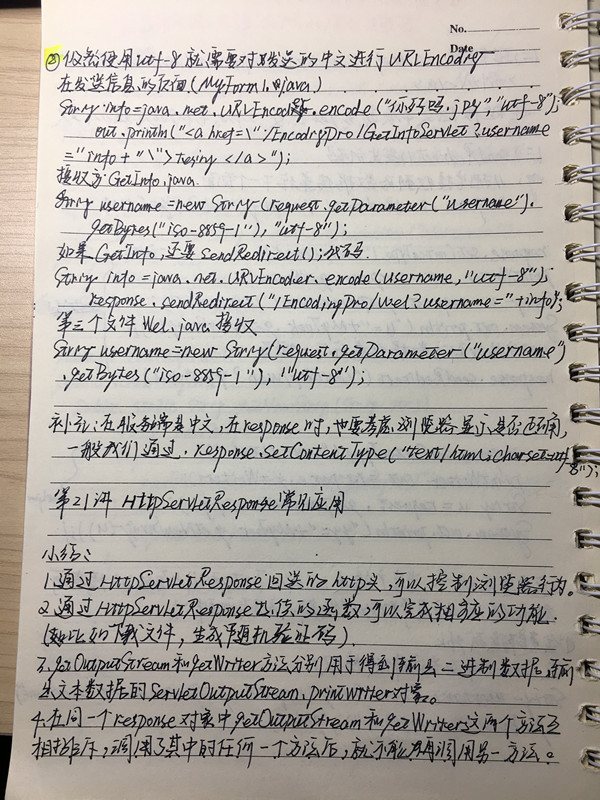 No.
Date
② 如若使用utf-8就需要对发送的中文进行URLEncoding
在发送信息的页面(MyForm1.java)
String info=java.net.URLEncoder.encode("你好吗.jpg","utf-8");
out.println("<a href=\"/EncodingPro/GetInfoServlet?username
="info+"\">tesing</a>");
接收方GetInfo.java
String username=new String(request.getParameter("username").
getBytes("iso-8859-1"),"utf-8");
如果GetInfo,还要sendRedirect();代码
String info=java.net.URLEncoder.encode(username,"utf-8");
response.sendRedirect("/EncodingPro/Wel?username="+info);
第三个文件Wel.java接收
String username=new String(request.getParameter("username")
.getBytes("iso-8859-1"),"utf-8");
补充:在服务器端是中文,在response时,也要考虑浏览器显示是否正确,
一般我们通过.response.setContentType("text/html;charset=utf-8");
第21讲 HttpServletResponse常见应用
小结:
1.通过HttpServletResponse回送的http头,可以控制浏览器行为。
2.通过HttpServletResponse提供的函数可以完成相应的功能.
(如比如下载文件,生成随机验证码).
3.getOutputStream和getWriter方法分别用于得到输出二进制数据、输出
文本数据的ServletOutputStream、printwriter对象。
4.在同一个response对象中getOutputStream和getWriter这两个方法互
相排斥,调用了其中的任何一个方法后,就不能再调用另一方法。